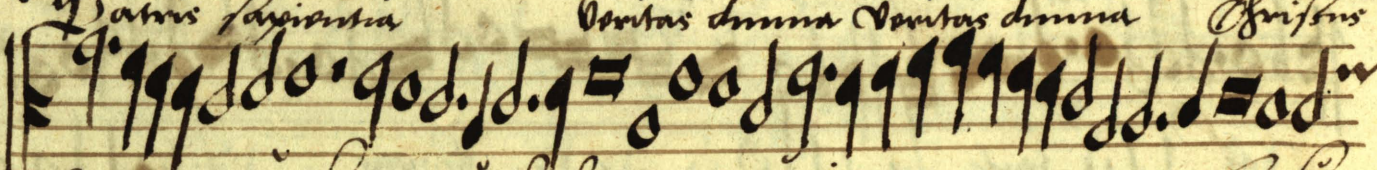 Patris sapientia Veritas diuina Veritas diuina Christus